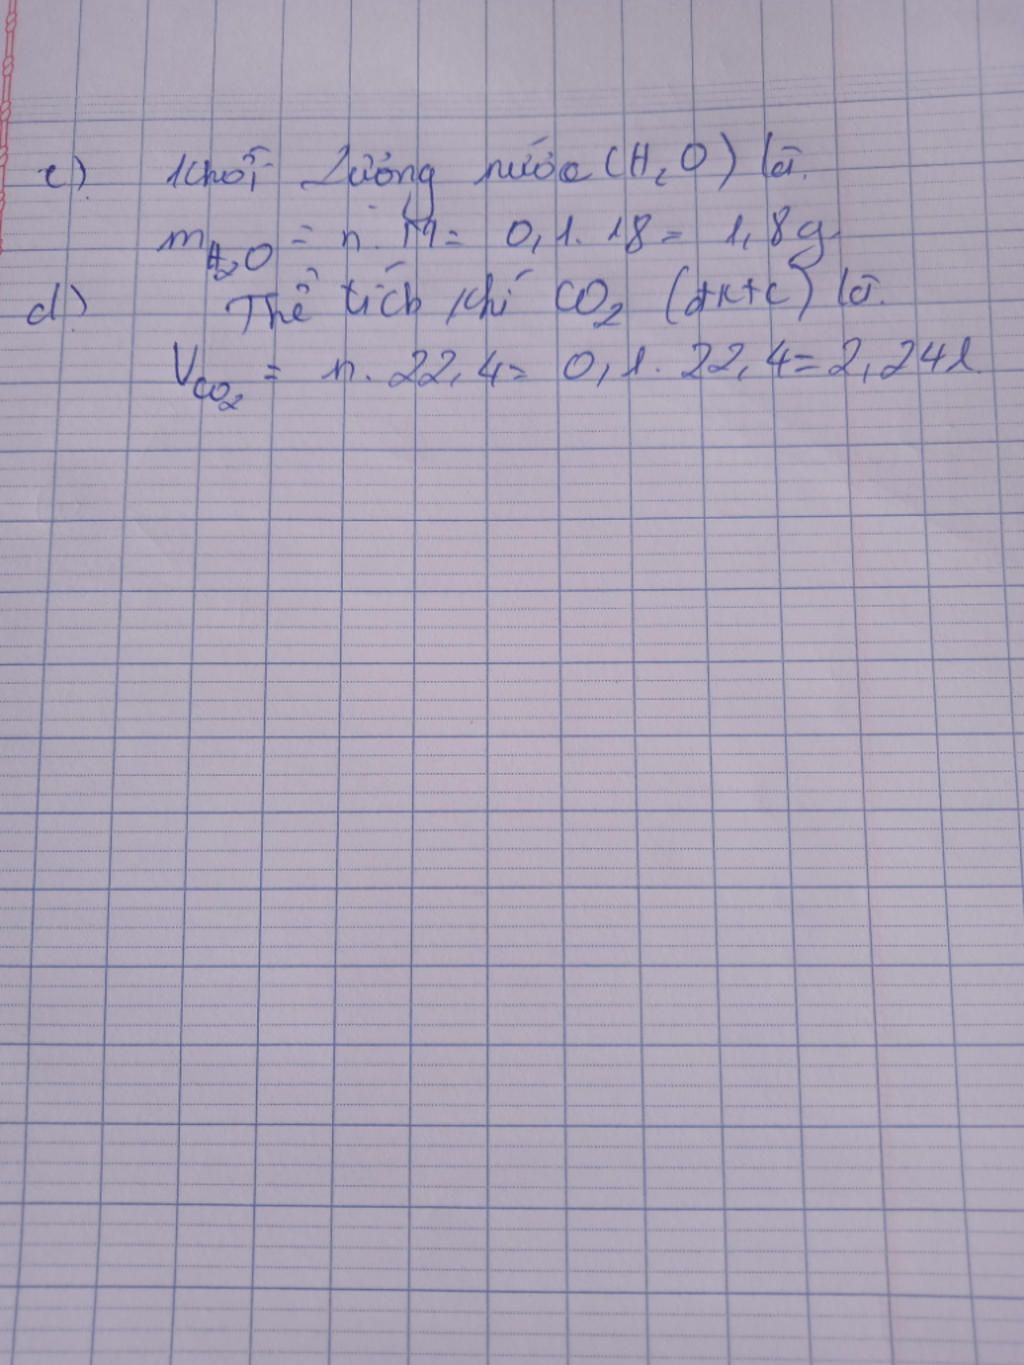 c) Khối lượng nước (H₂O) là.
m H₂O = n. M = 0,1. 18 = 1,8g
d) Thể tích khí CO₂ (đktc) là.
V CO₂ = n. 22,4 = 0,1. 22,4 = 2,24l.